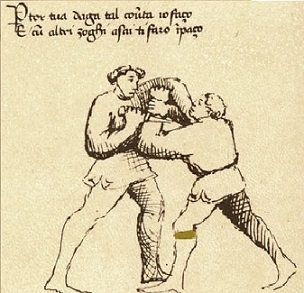 P tor tua daga tal couta io faço
E cũ altri zoghi asai ti faro ĩpaço